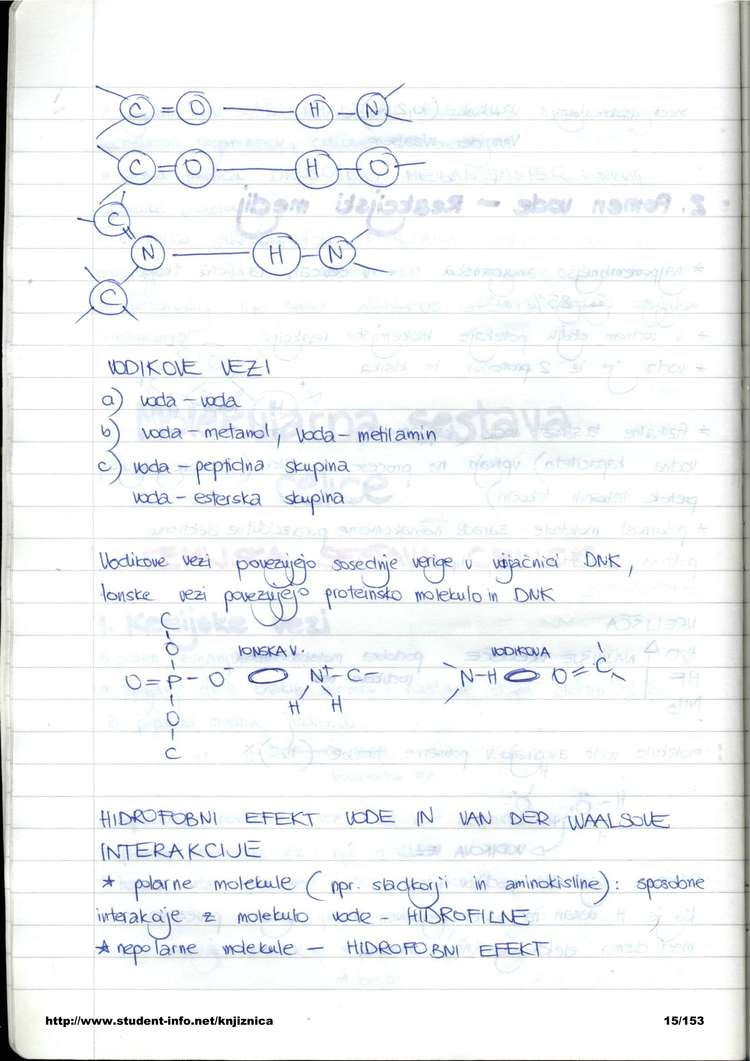 C = O — H — N
C = O — H — O
C
N — H — N
C
VODIKOVE VEZI
a) voda - voda
b) voda - metanol, voda - metilamin
c) voda - peptidna skupina
voda - esterska skupina
Vodikove vezi povezujejo sosednje verige v vijačnici DNK,
ionske vezi povezujejo proteinsko molekulo in DNK
C
O
IONSKA V.
VODIKOVA
O=P-O⁻ N⁺-C- N-H O=C
H H
O
C
HIDROFOBNI EFEKT VODE IN VAN DER WAALSOVE
INTERAKCIJE
* polarne molekule (npr. sladkorji in aminokisline): sposobne
interakcije z molekulo vode - HIDROFILNE
* nepolarne molekule - HIDROFOBNI EFEKT
http://www.student-info.net/knjiznica 15/153